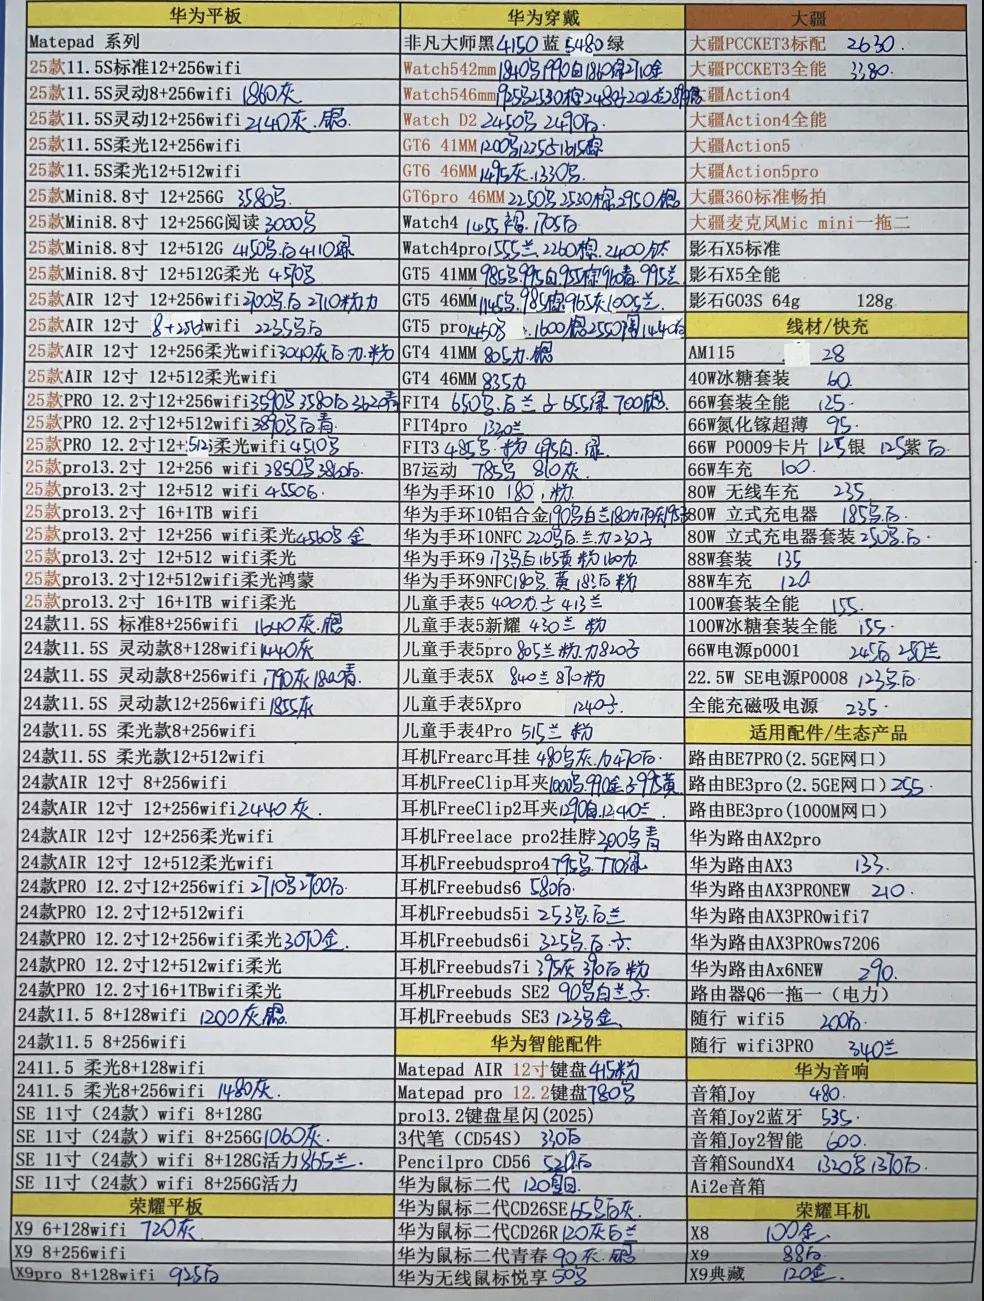 华为平板
Matepad 系列
25款11.5S标准12+256wifi
25款11.5S灵动8+256wifi 1860灰
25款11.5S灵动12+256wifi 2140灰.银
25款11.5S柔光12+256wifi
25款11.5S柔光12+512wifi
25款Mini8.8寸 12+256G 3580
25款Mini8.8寸 12+256G阅读 3000
25款Mini8.8寸 12+512G 4150 白4110绿
25款Mini8.8寸 12+512G柔光
25款AIR 12寸 12+256wifi 2700 白 2710粉
25款AIR 12寸 8+256wifi 2235 白
25款AIR 12寸 12+256柔光wifi 3040灰白 粉
25款AIR 12寸 12+512柔光wifi
25款PRO 12.2寸12+256wifi 3590 3580白3620青
25款PRO 12.2寸12+512wifi 3890 白青
25款PRO 12.2寸12+512柔光wifi 4510
25款pro13.2寸 12+256 wifi 3850 3860白
25款pro13.2寸 12+512 wifi 4550白
25款pro13.2寸 16+1TB wifi
25款pro13.2寸 12+256 wifi柔光4560 金
25款pro13.2寸 12+512 wifi柔光
25款pro13.2寸12+512wifi柔光鸿蒙
25款pro13.2寸 16+1TB wifi柔光
24款11.5S 标准8+256wifi 1640灰.银
24款11.5S 灵动款8+128wifi 1440灰
24款11.5S 灵动款8+256wifi 1790灰1800青
24款11.5S 灵动款12+256wifi 1855灰
24款11.5S 柔光款8+256wifi
24款11.5S 柔光款12+512wifi
24款AIR 12寸 8+256wifi
24款AIR 12寸 12+256wifi 2440灰.
24款AIR 12寸 12+256柔光wifi
24款AIR 12寸 12+512柔光wifi
24款PRO 12.2寸12+256wifi 2710 2700白.
24款PRO 12.2寸12+512wifi
24款PRO 12.2寸12+256wifi柔光3070金.
24款PRO 12.2寸12+512wifi柔光
24款PRO 12.2寸16+1TBwifi柔光
24款11.5 8+128wifi 1200灰银.
24款11.5 8+256wifi
2411.5 柔光8+128wifi
2411.5 柔光8+256wifi 1480灰.
SE 11寸（24款）wifi 8+128G
SE 11寸（24款）wifi 8+256G1060灰.
SE 11寸（24款）wifi 8+128G活力865兰.
SE 11寸（24款）wifi 8+256G活力
荣耀平板
X9 6+128wifi 720灰
X9 8+256wifi
X9pro 8+128wifi 925白
华为穿戴
非凡大师黑4150 蓝 5480 绿
Watch542mm1840 1990白1860 2710金
Watch546mm
Watch D2 2450 2490白.
GT6 41MM 1200
GT6 46MM 1495灰.1330
GT6pro 46MM 2250 2530棕2950银
Watch4 1455 1705白
Watch4pro1555兰.2260棕.2400钛
GT5 41MM 985 995白955棕960青.995兰
GT5 46MM 1145 985棕965灰1005兰.
GT5 pro1450 .1600棕2550
GT4 41MM 805 .银
GT4 46MM 835
FIT4 650 .白兰 655绿 700银.
FIT4pro 1330兰
FIT3 485 .粉 495白.绿.
B7运动 785 810灰
华为手环10 180 .粉
华为手环10铝合金190 白兰180
华为手环10NFC 220 白.兰
华为手环9 173 白165黄粉160
华为手环9NFC180 黄 183白粉
儿童手表5 400 413兰
儿童手表5新耀 430兰 粉
儿童手表5pro 805兰粉 820
儿童手表5X 840兰 870粉
儿童手表5Xpro 1240
儿童手表4Pro 515兰 粉
耳机Frearc耳挂 480 灰 470白.
耳机FreeClip耳夹1000 990金 995黄
耳机FreeClip2耳夹1290白.1240兰
耳机Freelace pro2挂脖300 青
耳机Freebudspro4 795 770绿
耳机Freebuds6 580白
耳机Freebuds5i 253 .白兰
耳机Freebuds6i 325 .白.
耳机Freebuds7i 395灰 390白粉
耳机Freebuds SE2 90 白兰
耳机Freebuds SE3 123 金
华为智能配件
Matepad AIR 12寸键盘415粉
Matepad pro 12.2键盘780
pro13.2键盘星闪(2025)
3代笔（CD54S） 330白
Pencilpro CD56 520白
华为鼠标二代 120
华为鼠标二代CD26SE65 白灰
华为鼠标二代CD26R120灰白兰
华为鼠标二代青春 90灰.银
华为无线鼠标悦享50
大疆
大疆PCCKET3标配 2630.
大疆PCCKET3全能 3380.
大疆Action4
大疆Action4全能
大疆Action5
大疆Action5pro
大疆360标准畅拍
大疆麦克风Mic mini一拖二
影石X5标准
影石X5全能
影石GO3S 64g 128g
线材/快充
AM115 28
40W冰糖套装 60
66W套装全能 125.
66W氮化镓超薄 95.
66W P0009卡片 125银 125紫白
66W车充 100.
80W 无线车充 235.
80W 立式充电器 185 白.
80W 立式充电器套装250 白.
88W套装 135
88W车充 120
100W套装全能 155.
100W冰糖套装全能 155.
66W电源p0001 245白 250兰
22.5W SE电源P0008 123 白
全能充磁吸电源 235.
适用配件/生态产品
路由BE7PRO(2.5GE网口)
路由BE3pro(2.5GE网口)255.
路由BE3pro(1000M网口)
华为路由AX2pro
华为路由AX3 133.
华为路由AX3PRONEW 210.
华为路由AX3PROwifi7
华为路由AX3PROws7206
华为路由Ax6NEW 290.
路由器Q6一拖一（电力）
随行 wifi5 200白.
随行 wifi3PRO 340兰
华为音响
音箱Joy 480.
音箱Joy2蓝牙 535.
音箱Joy2智能 600.
音箱SoundX4 1320 1370白.
Ai2e音箱
荣耀耳机
X8 100金.
X9 88白
X9典藏 120金.